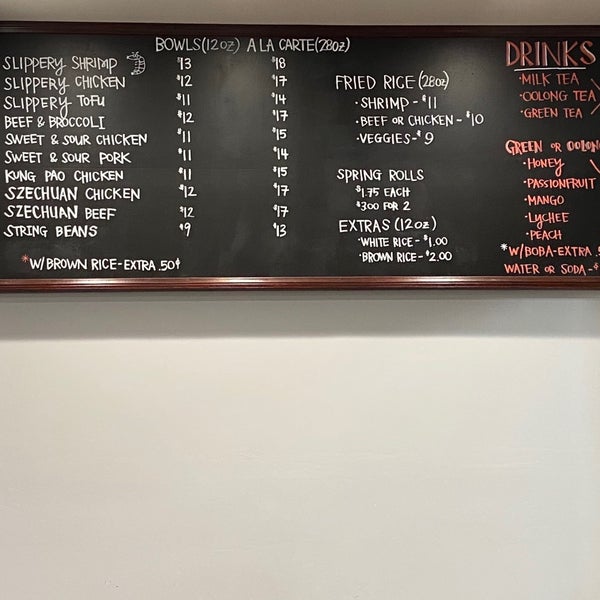 BOWLS(12oz) A LA CARTE(28oz)
SLIPPERY SHRIMP $13 $18
SLIPPERY CHICKEN $12 $17
SLIPPERY TOFU $11 $14
BEEF & BROCCOLI $12 $17
SWEET & SOUR CHICKEN $11 $15
SWEET & SOUR PORK $11 $14
KUNG PAO CHICKEN $11 $15
SZECHUAN CHICKEN $12 $17
SZECHUAN BEEF $12 $17
STRING BEANS $9 $13
*W/BROWN RICE-EXTRA .50¢
FRIED RICE (28oz)
·SHRIMP - $11
·BEEF OR CHICKEN - $10
·VEGGIES - $9
SPRING ROLLS
$1.75 EACH
$3.00 FOR 2
EXTRAS (12oz)
·WHITE RICE - $1.00
·BROWN RICE - $2.00
DRINKS
·MILK TEA
·OOLONG TEA
·GREEN TEA
GREEN OR OOLONG
·HONEY
·PASSIONFRUIT
·MANGO
·LYCHEE
·PEACH
*W/BOBA-EXTRA
WATER OR SODA - $